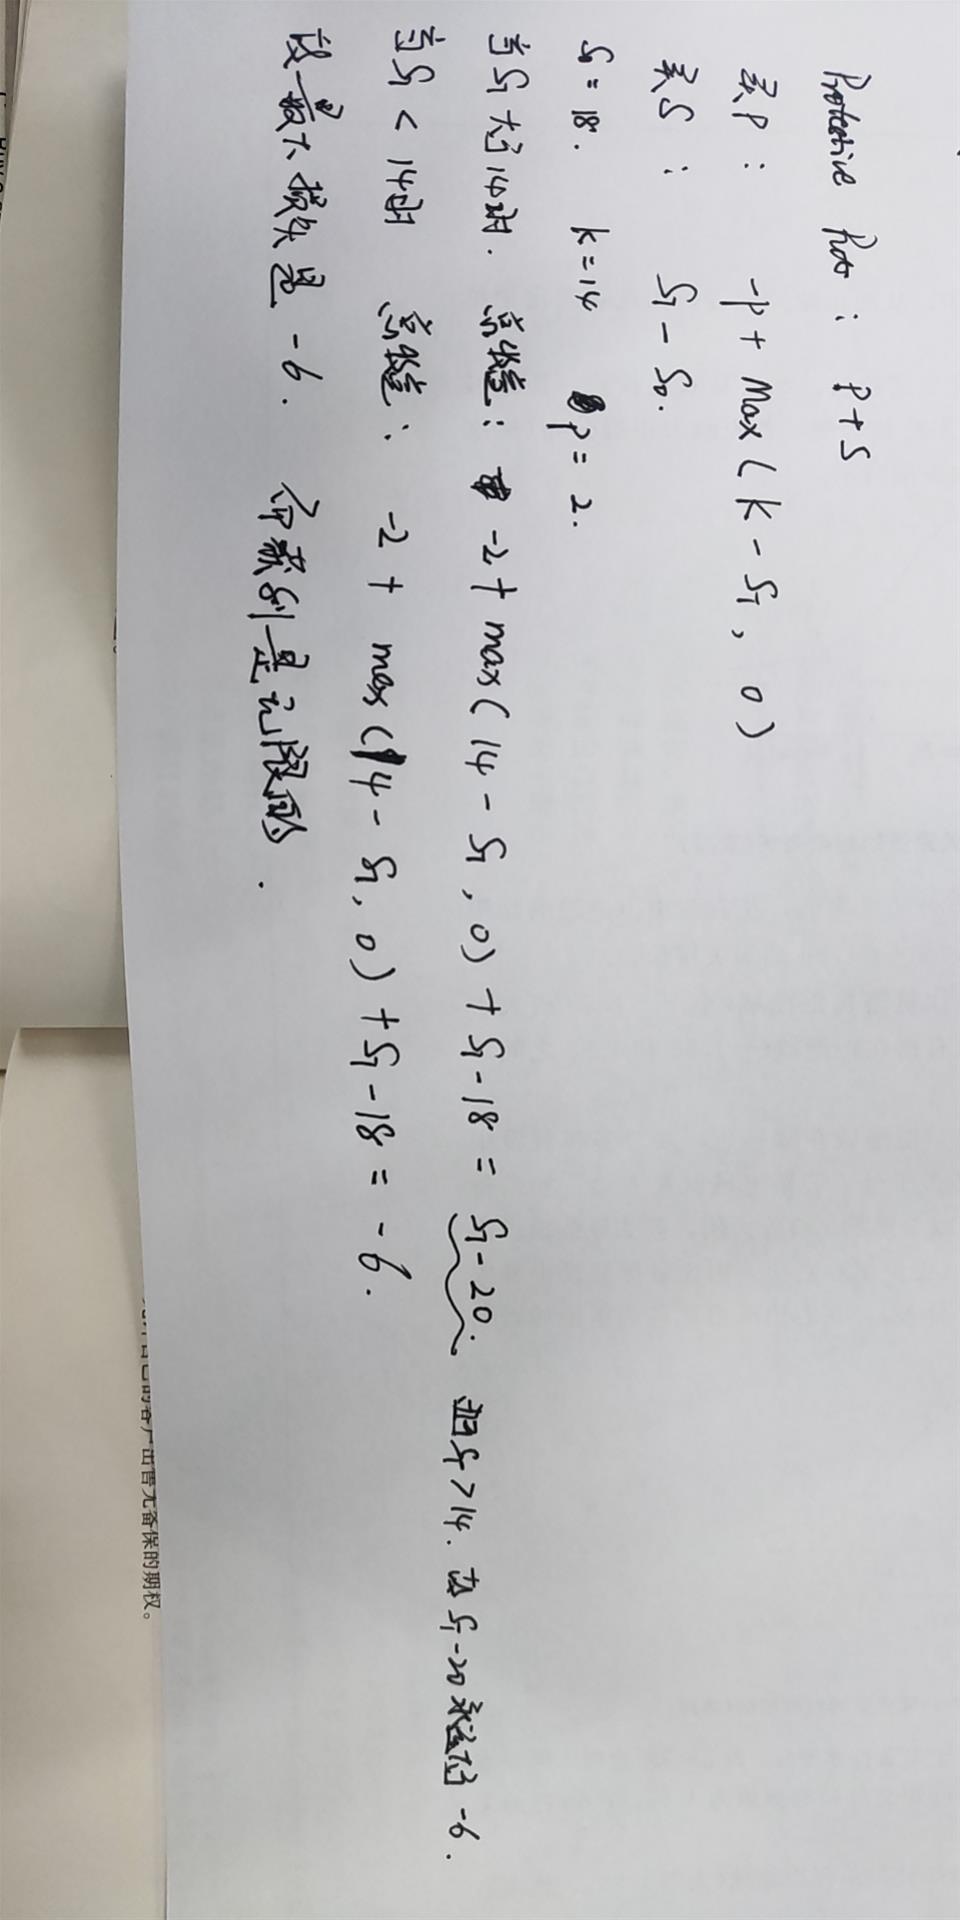 Protective Put : P + S
买P : -P + Max ( K - ST , 0 )
买S : ST - S0.
S0 = 18. K = 14 P = 2.
当ST大于14时. 总收益: -2 + max ( 14 - ST , 0 ) + ST - 18 = ST - 20. 担ST > 14. 故ST - 20永远大于 -6.
当ST < 14时 总收益: -2 + max ( 14 - ST , 0 ) + ST - 18 = -6.
故最大损失是 -6. 而获利是无限的.
自己的客户出售无备保的期权。